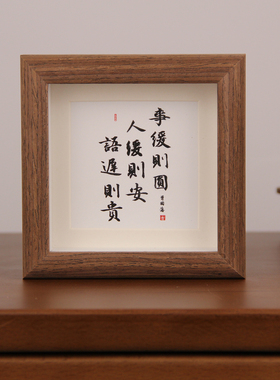 事緩則圓
人緩則安
語遲則貴
曾國藩